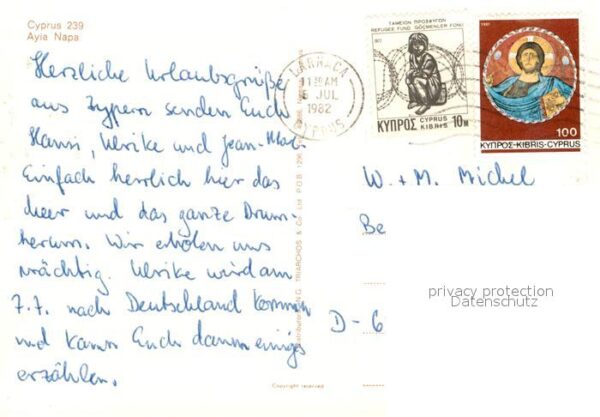 Cyprus 239
Ayia Napa
Herzliche Urlaubsgrüße
aus Zypern senden Euch
Hansi, Ulrike und Jean-Marc
Einfach herrlich hier das
Meer und das ganze Drum-
herum. Wir erholen uns
mächtig. Ulrike wird am
7.7. nach Deutschland kommen
und kann Euch dann einiges
erzählen.
LARNACA
11 30 AM
JUL
1982
CYPRUS
ΤΑΜΕΙΟΝ ΠΡΟΣΦΥΓΩΝ
REFUGEE FUND GÖÇMENLER FONU
1977
ΚΥΠΡΟΣ CYPRUS KIBRIS 10M
1981
100
ΚΥΠΡΟΣ-KIBRIS-CYPRUS
W. + M. Michel
Be
privacy protection
Datenschutz
D - 6
TRIARCHOS & Co Ltd P.O.B.
Copyright reserved